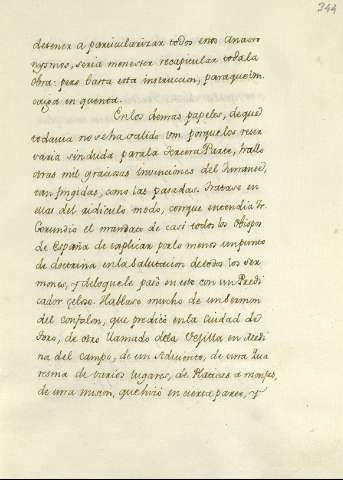 244
detener a particularizar todos enos Anacro
nysmos, seria menester recapitular toda la
obra: pero basta esta instruccion, para que Vm.
caiga en quenta.
En los demas papeles, de que
todavia no se ha valido Vm porque los reser
varia sin duda para la tercera Parte, hallo
otras mil graciosas invenciones del
tan fingidas, como las pasadas. Tratase en
ellas del ridiculo modo, con que entendia Fr.
Gerundio el mandato de casi todos los Obispos
de España de explicar por lo menos un punto
de doctrina en la Salutacion de todos los Ser
mones, y de lo que le pasó en esto con un Predi
cador zeloso. Hablase mucho de un Sermon
del confalon, que predicó en la Ciudad de
Toro, de otro llamado de la Vejilla en Medi
na del campo, de un Adviento, de una Qua
resma de varios lugares, de Platicas a monjas,
de una mision, que hizo en cierta parte, y